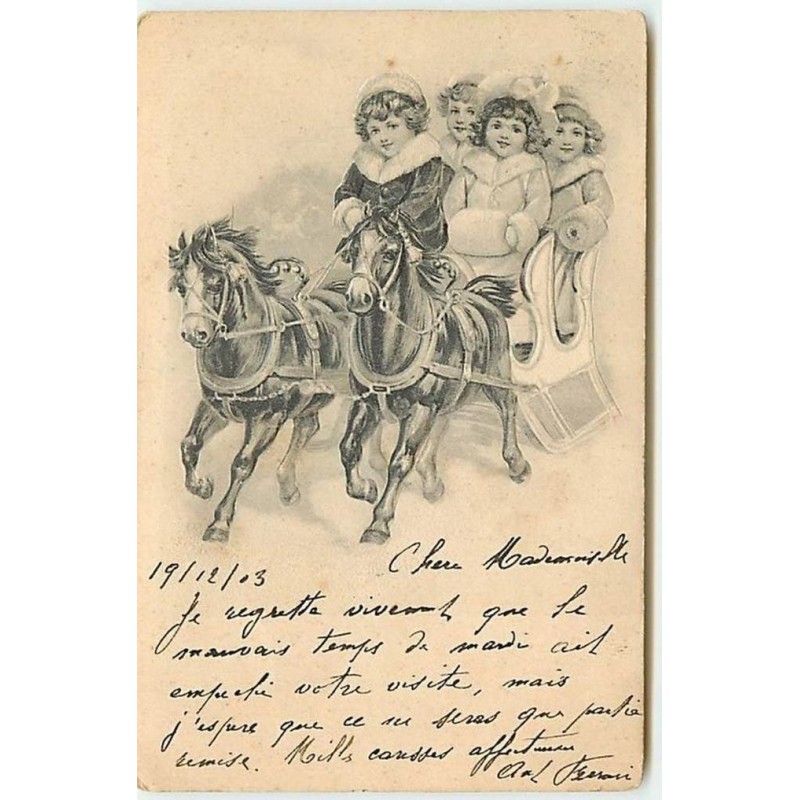 19/12/03 Chere Mademoiselle
Je regrette vivement que le
mauvais temps de mardi ait
empeché votre visite, mais
j'espere que ce ne seras que partie
remise. Mille caresses affectueuses